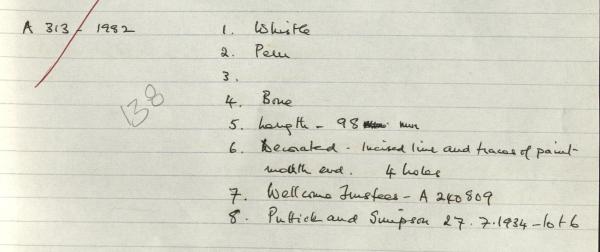 A 313 - 1982 1. Whistle
2. Peru
3.
138
4. Bone
5. Length - 98 mm
6. Decorated - Incised line and traces of paint-
mouth end. 4 holes
7. Wellcome Trustees - A 240809
8. Puttick and Simpson 27.7.1934 - lot 6